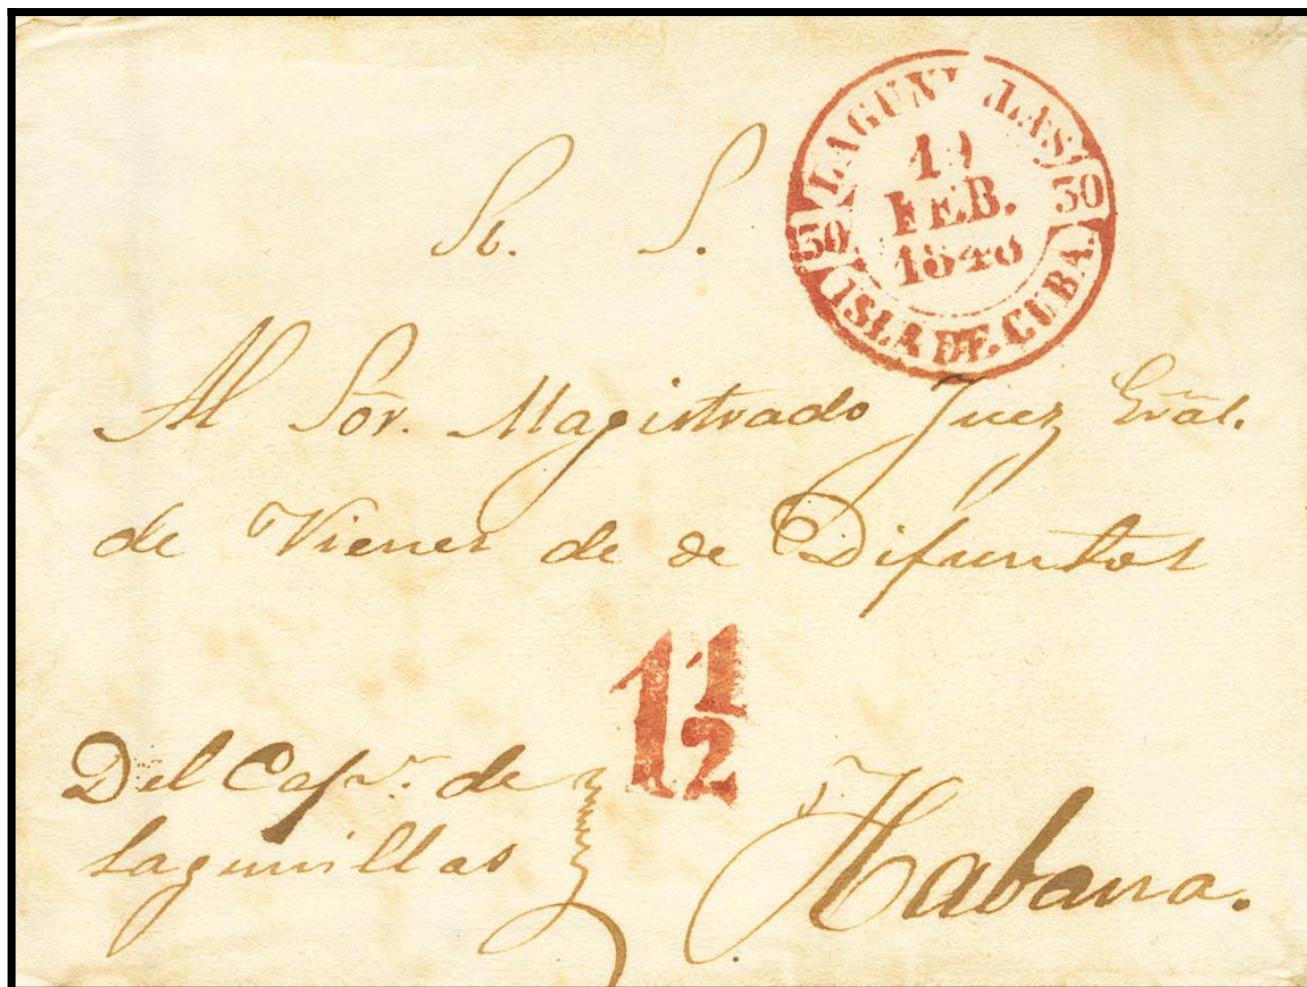 LAGUNILLAS
FEB.
30 30
ISLA DE CUBA.
S.
Al Sõr. Magistrado Juez Grãl.
de Vienes de de Difuntos
1 1/2
Del Capn. de
Lagunillas
Habana.